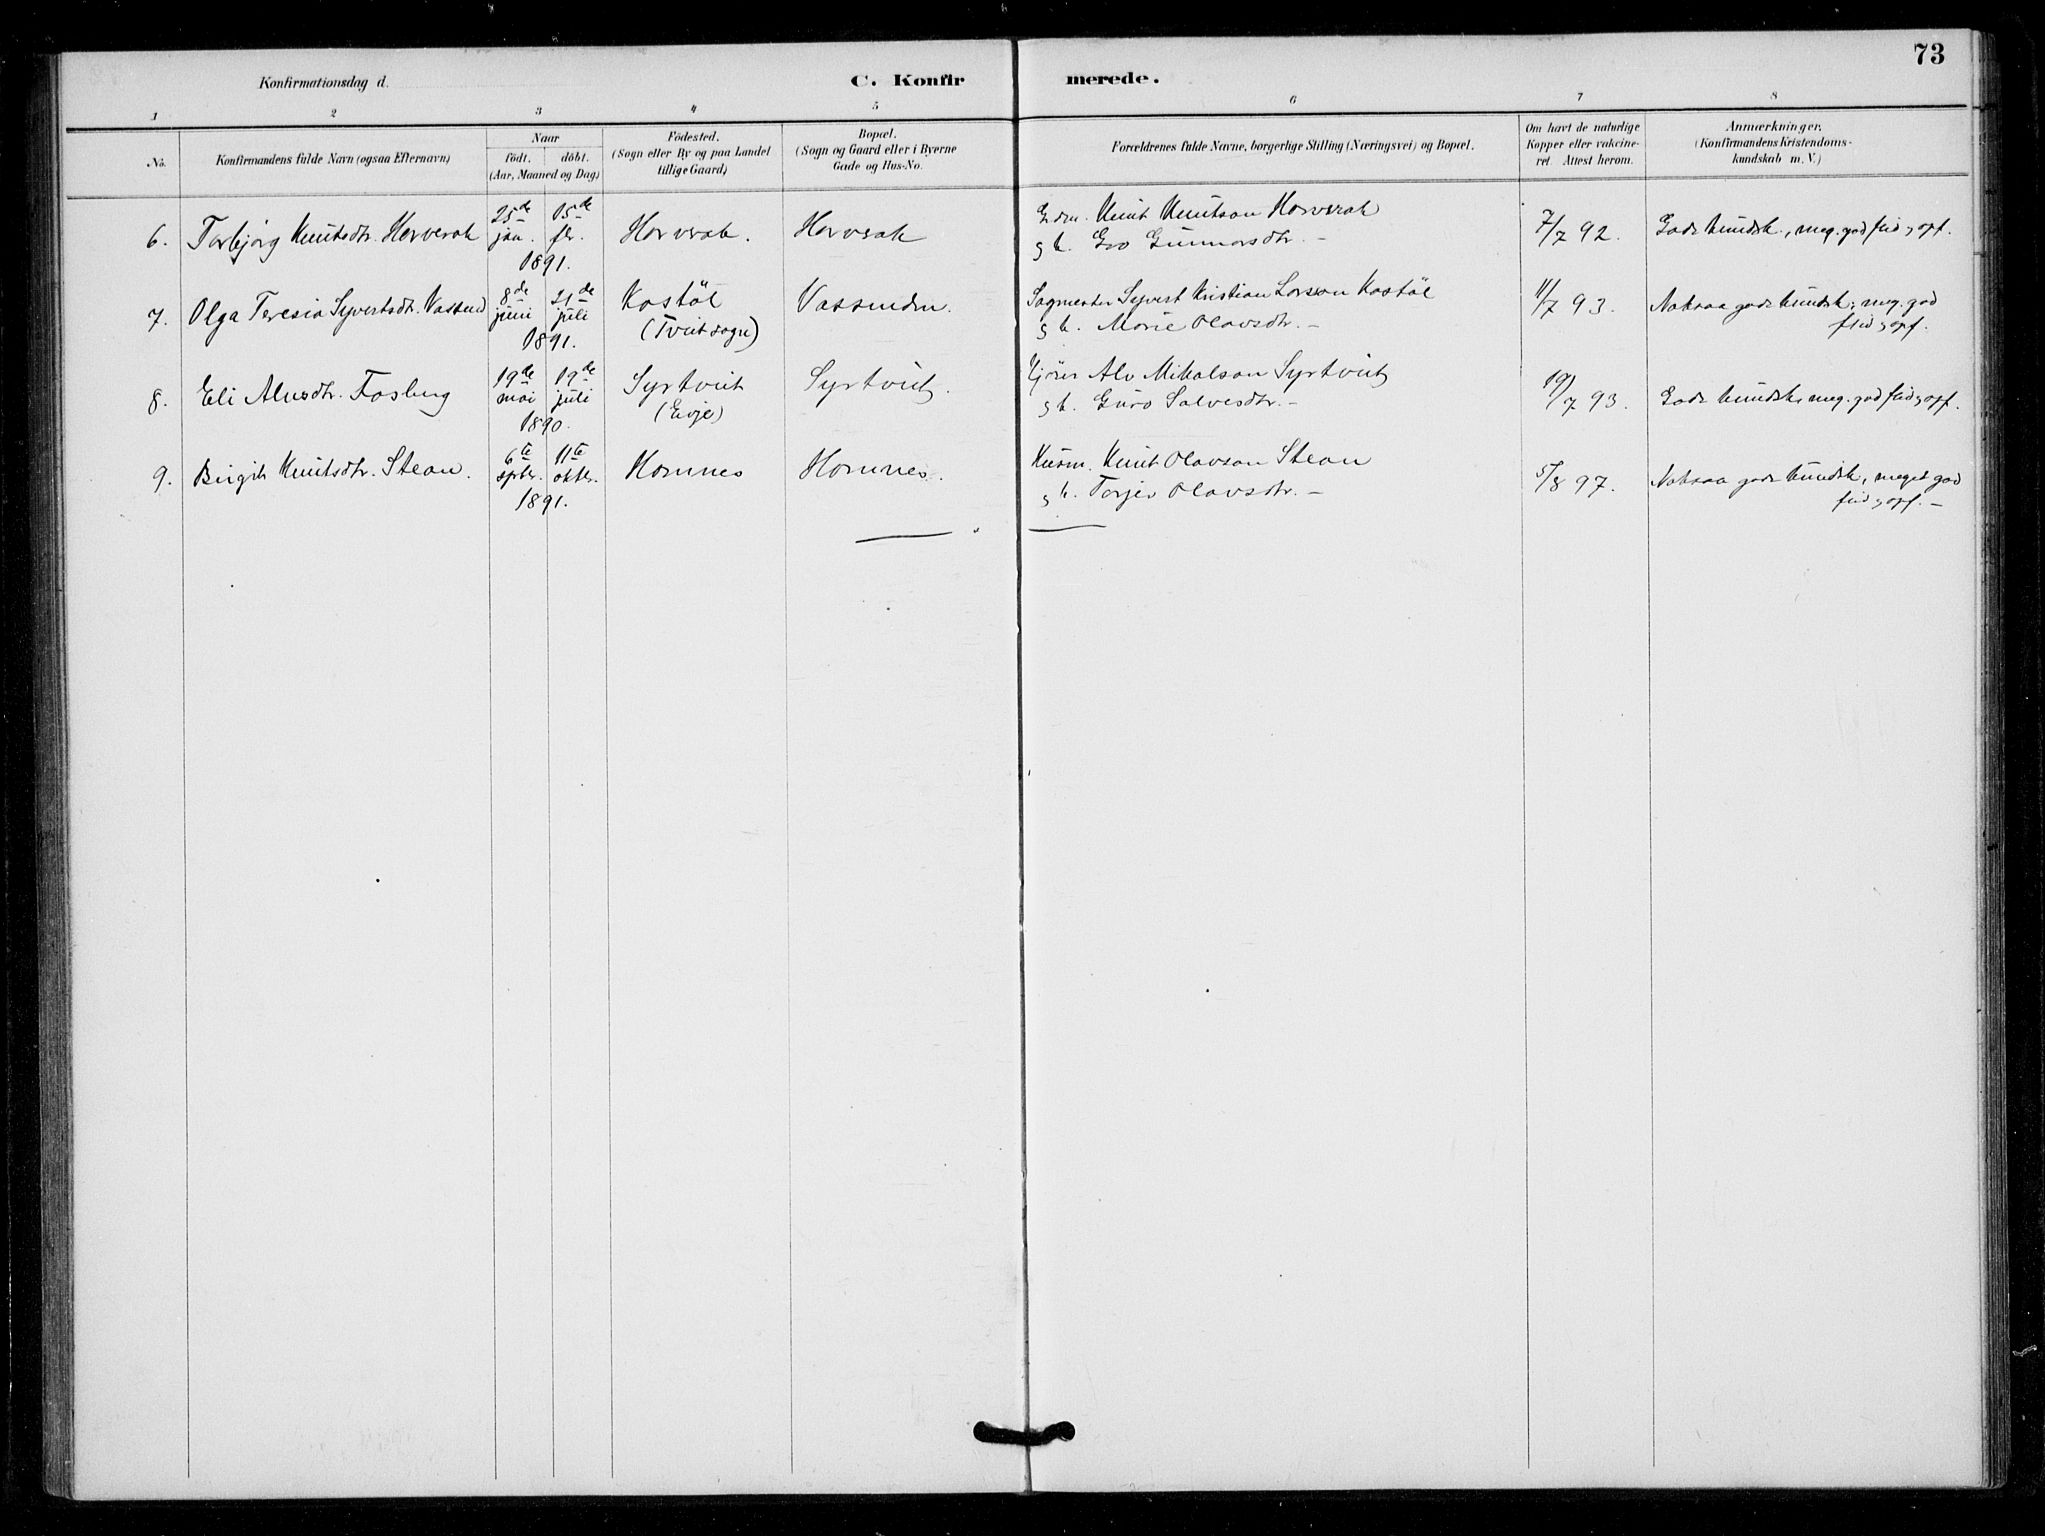 73
Konfirmationsdag d.
C. Konfirmerede.
1 2 3 4 5 6 7 8
No.
Konfirmandens fulde Navn (ogsaa Efternavn)
Naar
födt. döbt.
(Aar, Maaned og Dag)
Födested.
(Sogn eller By og paa Landet
tillige Gaard)
Bopæl.
(Sogn og Gaard eller i Byerne
Gade og Hus-No.
Forældrenes fulde Navne, borgerlige Stilling (Næringsvei) og Bopæl.
Om havt de naturlige
Kopper eller vakcine-
ret. Attest herom.
Anmærkninger.
(Konfirmandens Kristendoms-
kundskab m.V.)
6. Torbjørg Knutsdtr. Horverak 25de jan. 15de fbr. 1891. Horverak. Horverak Grdm. Knut Knutson Horverak
og h. Gro Gunnarsdtr. – 7/7 92. Gode kundsk., meg. god flid og opf.
7. Olga Teresia Syvertsdtr. Vasend 8de juni 21de juli 1891. Kostöl
(Tveit sogn) Vassenden. Sagmester Syvert Kristian Larson Kostöl
og h. Marie Olavsdtr. – 11/7 93. Noksaa gode kundsk., meg. god
flid og opf.
8. Eli Alvsdtr. Fosberg 19de mai 19de juli 1890. Syrtveit
(Evje) Syrtveit. Alv Mikalson Syrtveit
og h. Guro Salvesdtr. – 19/7 93. Gode kundsk. meg. god flid og opf.
9. Birgit Knutsdtr. Stean. 6te sptbr. 11te oktbr. 1891. Homnes Homnes. Husm. Knut Olavson Stean
og h. Torjer Olavsdtr. – 5/8 97. Noksaa gode kundsk., meget god
flid og opf. –